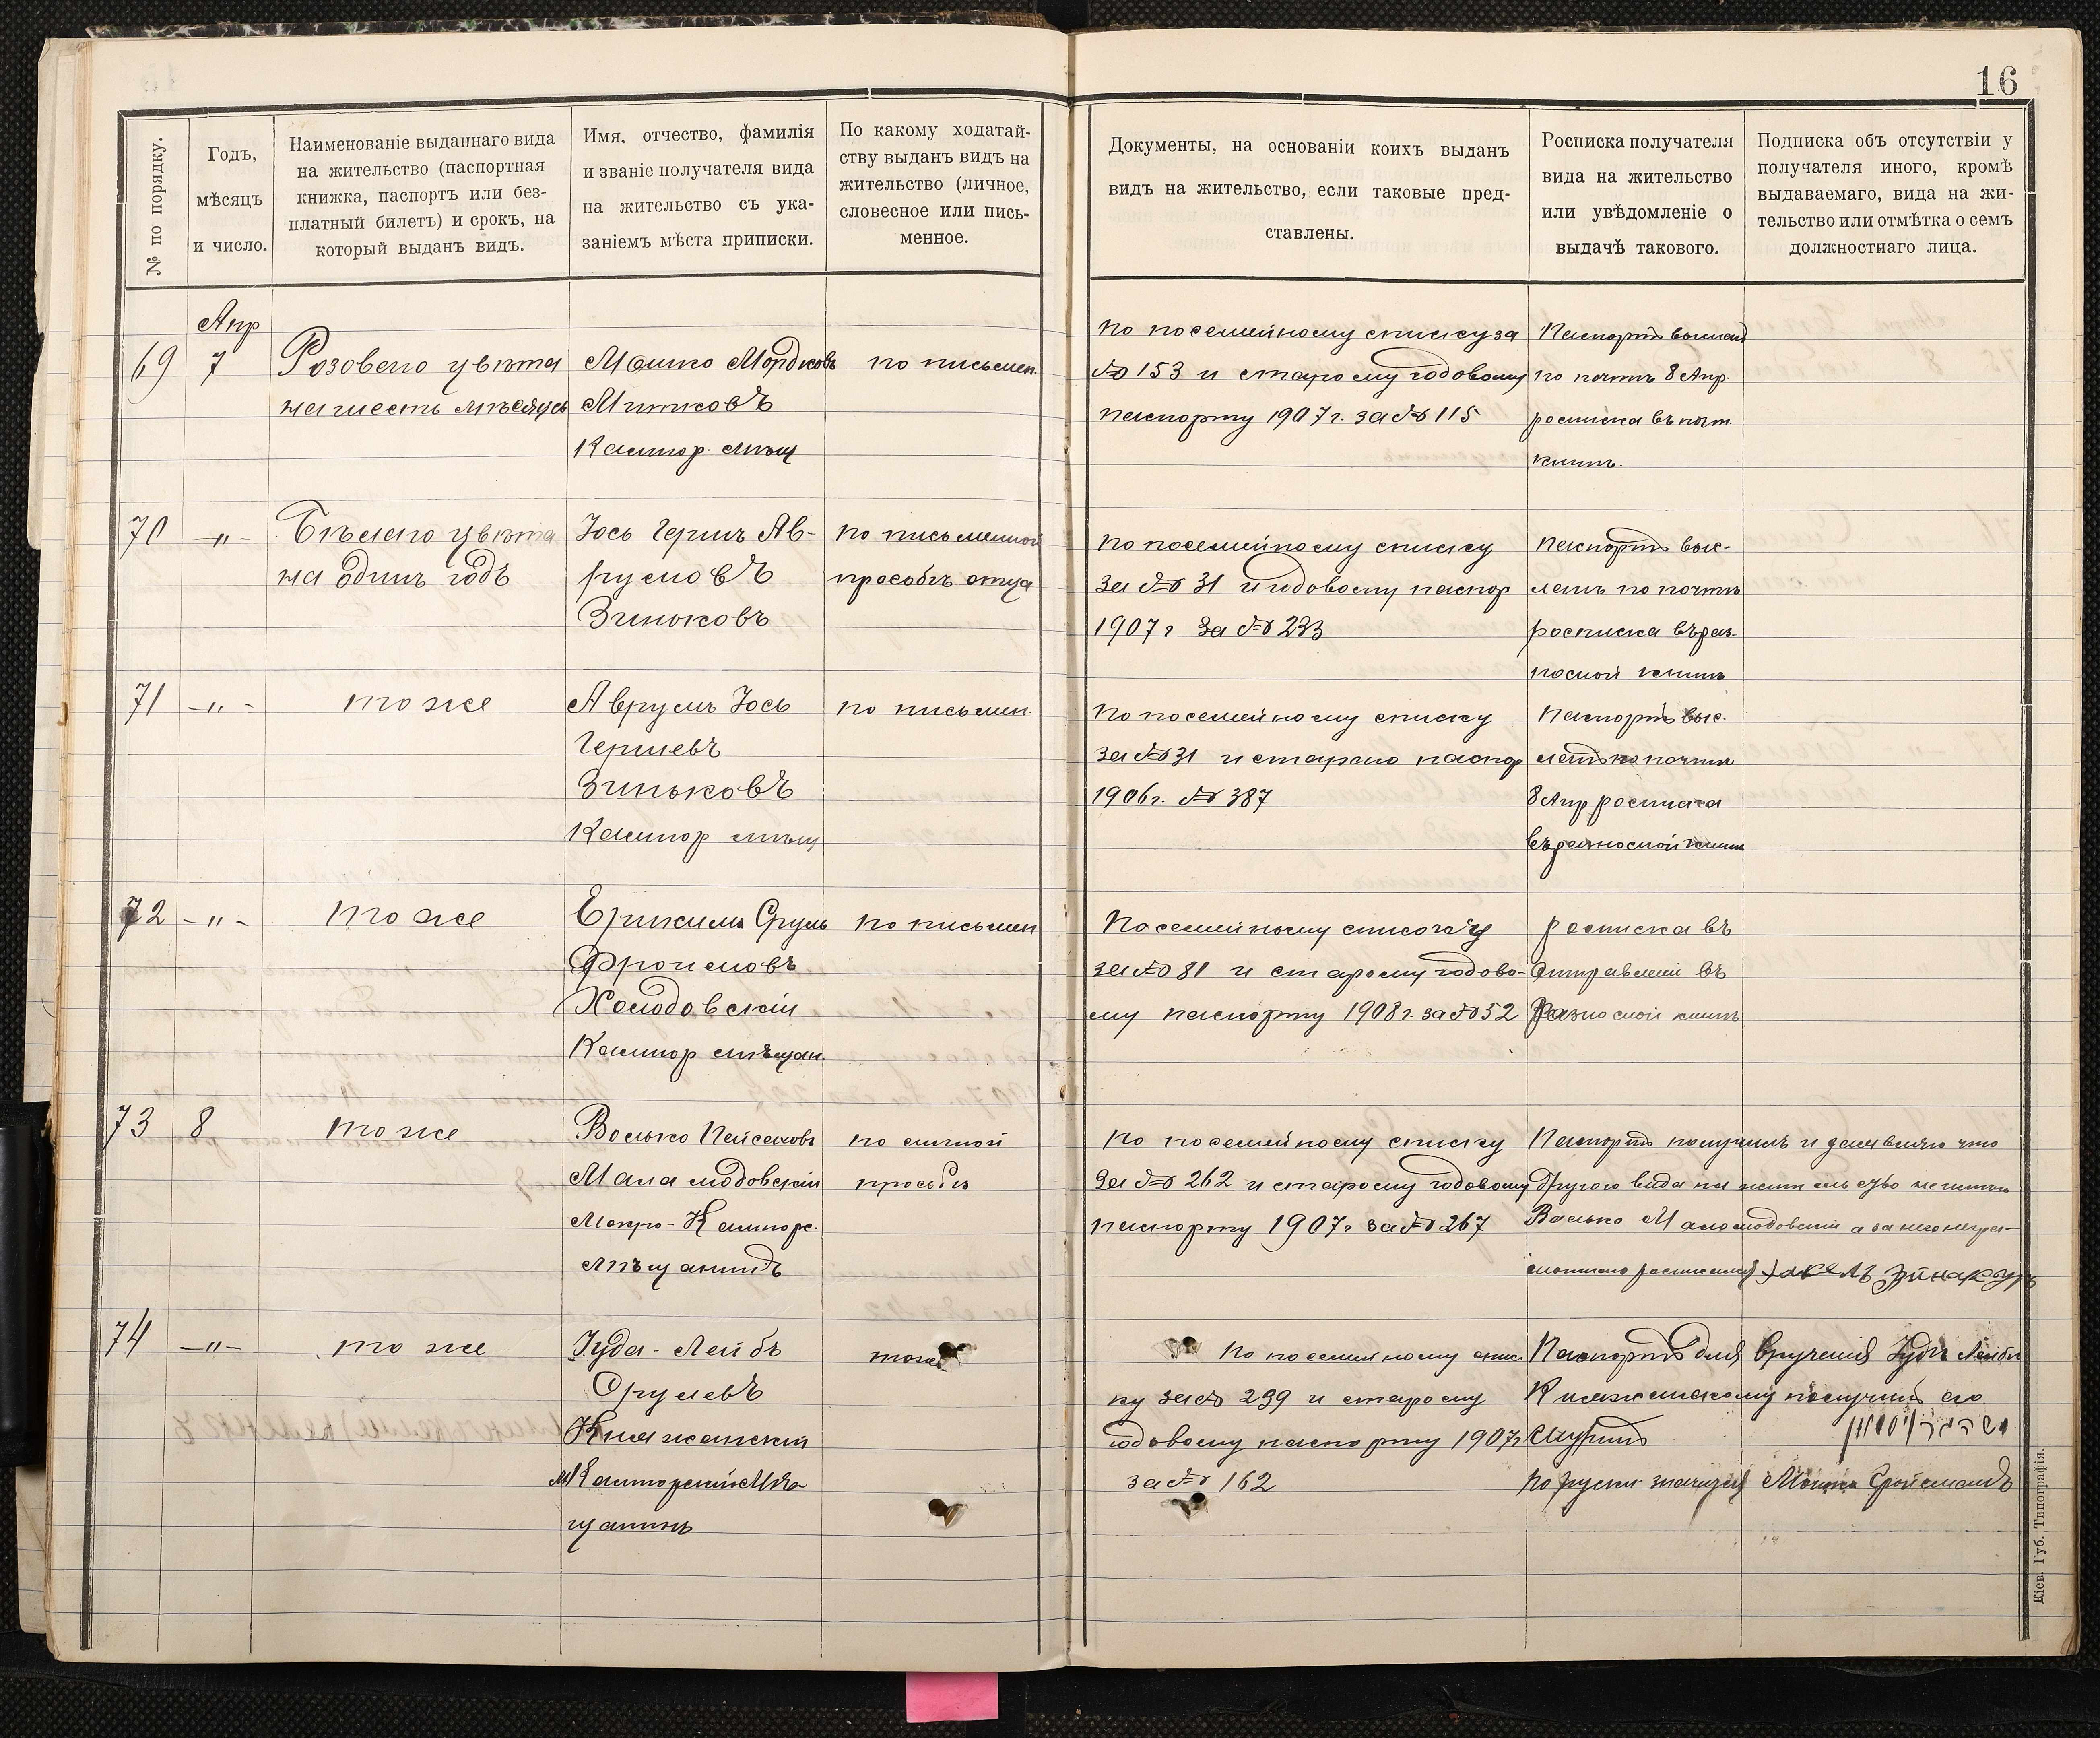 16
№ по порядку.
Годъ,
мѣсяцъ
и число.
Наименованіе выданнаго вида
на жительство (паспортная
книжка, паспортъ или без-
платный билетъ) и срокъ, на
который выданъ видъ.
Имя, отчество, фамилія
и званіе получателя вида
на жительство съ ука-
заніемъ мѣста приписки.
По какому ходатай-
ству выданъ видъ на
жительство (личное,
словесное или пись-
менное.
Документы, на основаніи коихъ выданъ
видъ на жительство, если таковые пред-
ставлены.
Росписка получателя
вида на жительство
или увѣдомленіе о
выдачѣ такового.
Подписка объ отсутствіи у
получателя иного, кромѣ
выдаваемаго, вида на жи-
тельство или отмѣтка о семъ
должностнаго лица.
69
Апр
7
Розоваго цвѣта
на шесть мѣсяцевъ
Мошко Мордковъ
Митковъ
по письмен.
По посемейному списку за
№ 153 и старому годовому
паспорту 1907 г. за № 115
Паспортъ
по почтѣ 8 Апр.
росписка въ почт.
книгѣ.
70
-"-
Бѣлаго цвѣта
на одинъ годъ
Іось Гершъ Ав-
румовъ
Зиньковъ
по письменной
просьбѣ отца
По посемейному списку
за № 31 и годовому паспор
1907 г за № 233
Паспортъ выс-
ланъ по почтѣ
росписка въ раз-
носной книгѣ
71
-"-
тоже
Аврумъ Іось
Гершевъ
Зиньковъ
по письмен.
По посемейному списку
за № 31 и стараго паспор
1906 г. № 387
Паспортъ выс.
по почтѣ
8 Апр росписка
въ разносной книгѣ
72
-"-
тоже
Сруль
Фроимовъ
Холодовскій
мѣщан.
по письмен
Посемейному
за № 81 и старому годово-
му паспорту 1908 г. за № 52
росписка въ
въ
разносной книгѣ
73
8
тоже
Волько Пейсаховъ
Малолюдовскій
мѣщанинъ
по личной
просьбѣ
По посемейному списку
за № 262 и старому годовому
паспорту 1907 г за № 267
Паспортъ получилъ и заявляю что
другого вида на жительство не имѣю
Волько Малолюдовскій а за него негра-
мотнаго росписался
74
-"-
тоже
Іуда-Лейбъ
Срулевъ
Княжанскій
тоже
По посемейному спис
ку за № 239 и старому
годовому паспорту 1907 г
за № 162
Паспортъ для врученія Іудѣ Лейбѣ
Княжанскому получилъ его
По русски значится Мошко
Кіев. Губ. Типографія.